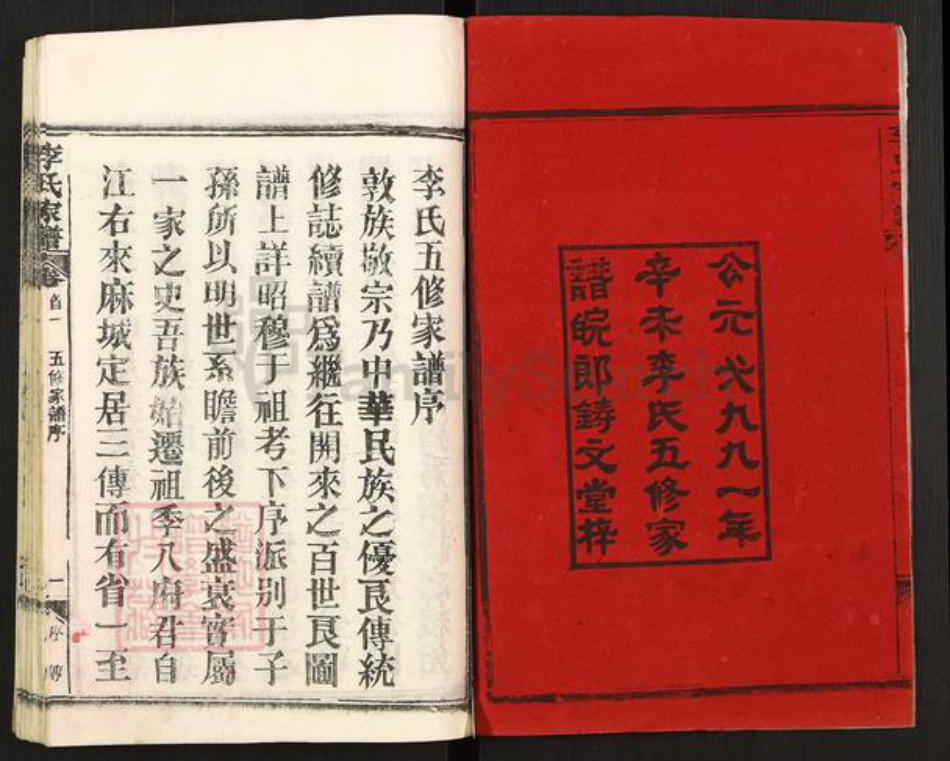 公元一九九一年
辛未李氏五修家
譜皖郎鑄文堂梓
李氏五修家譜序
敦族敬宗乃中華民族之優良傳統
修誌續譜爲繼往開來之百世良圖
譜上詳昭穆于祖考下序派别于子
孫所以明世系瞻前後之盛衰實屬
一家之史吾族始遷祖季八府君自
江右來麻城定居三傳而有省一至
李氏家譜
卷首一
五修家譜序
一